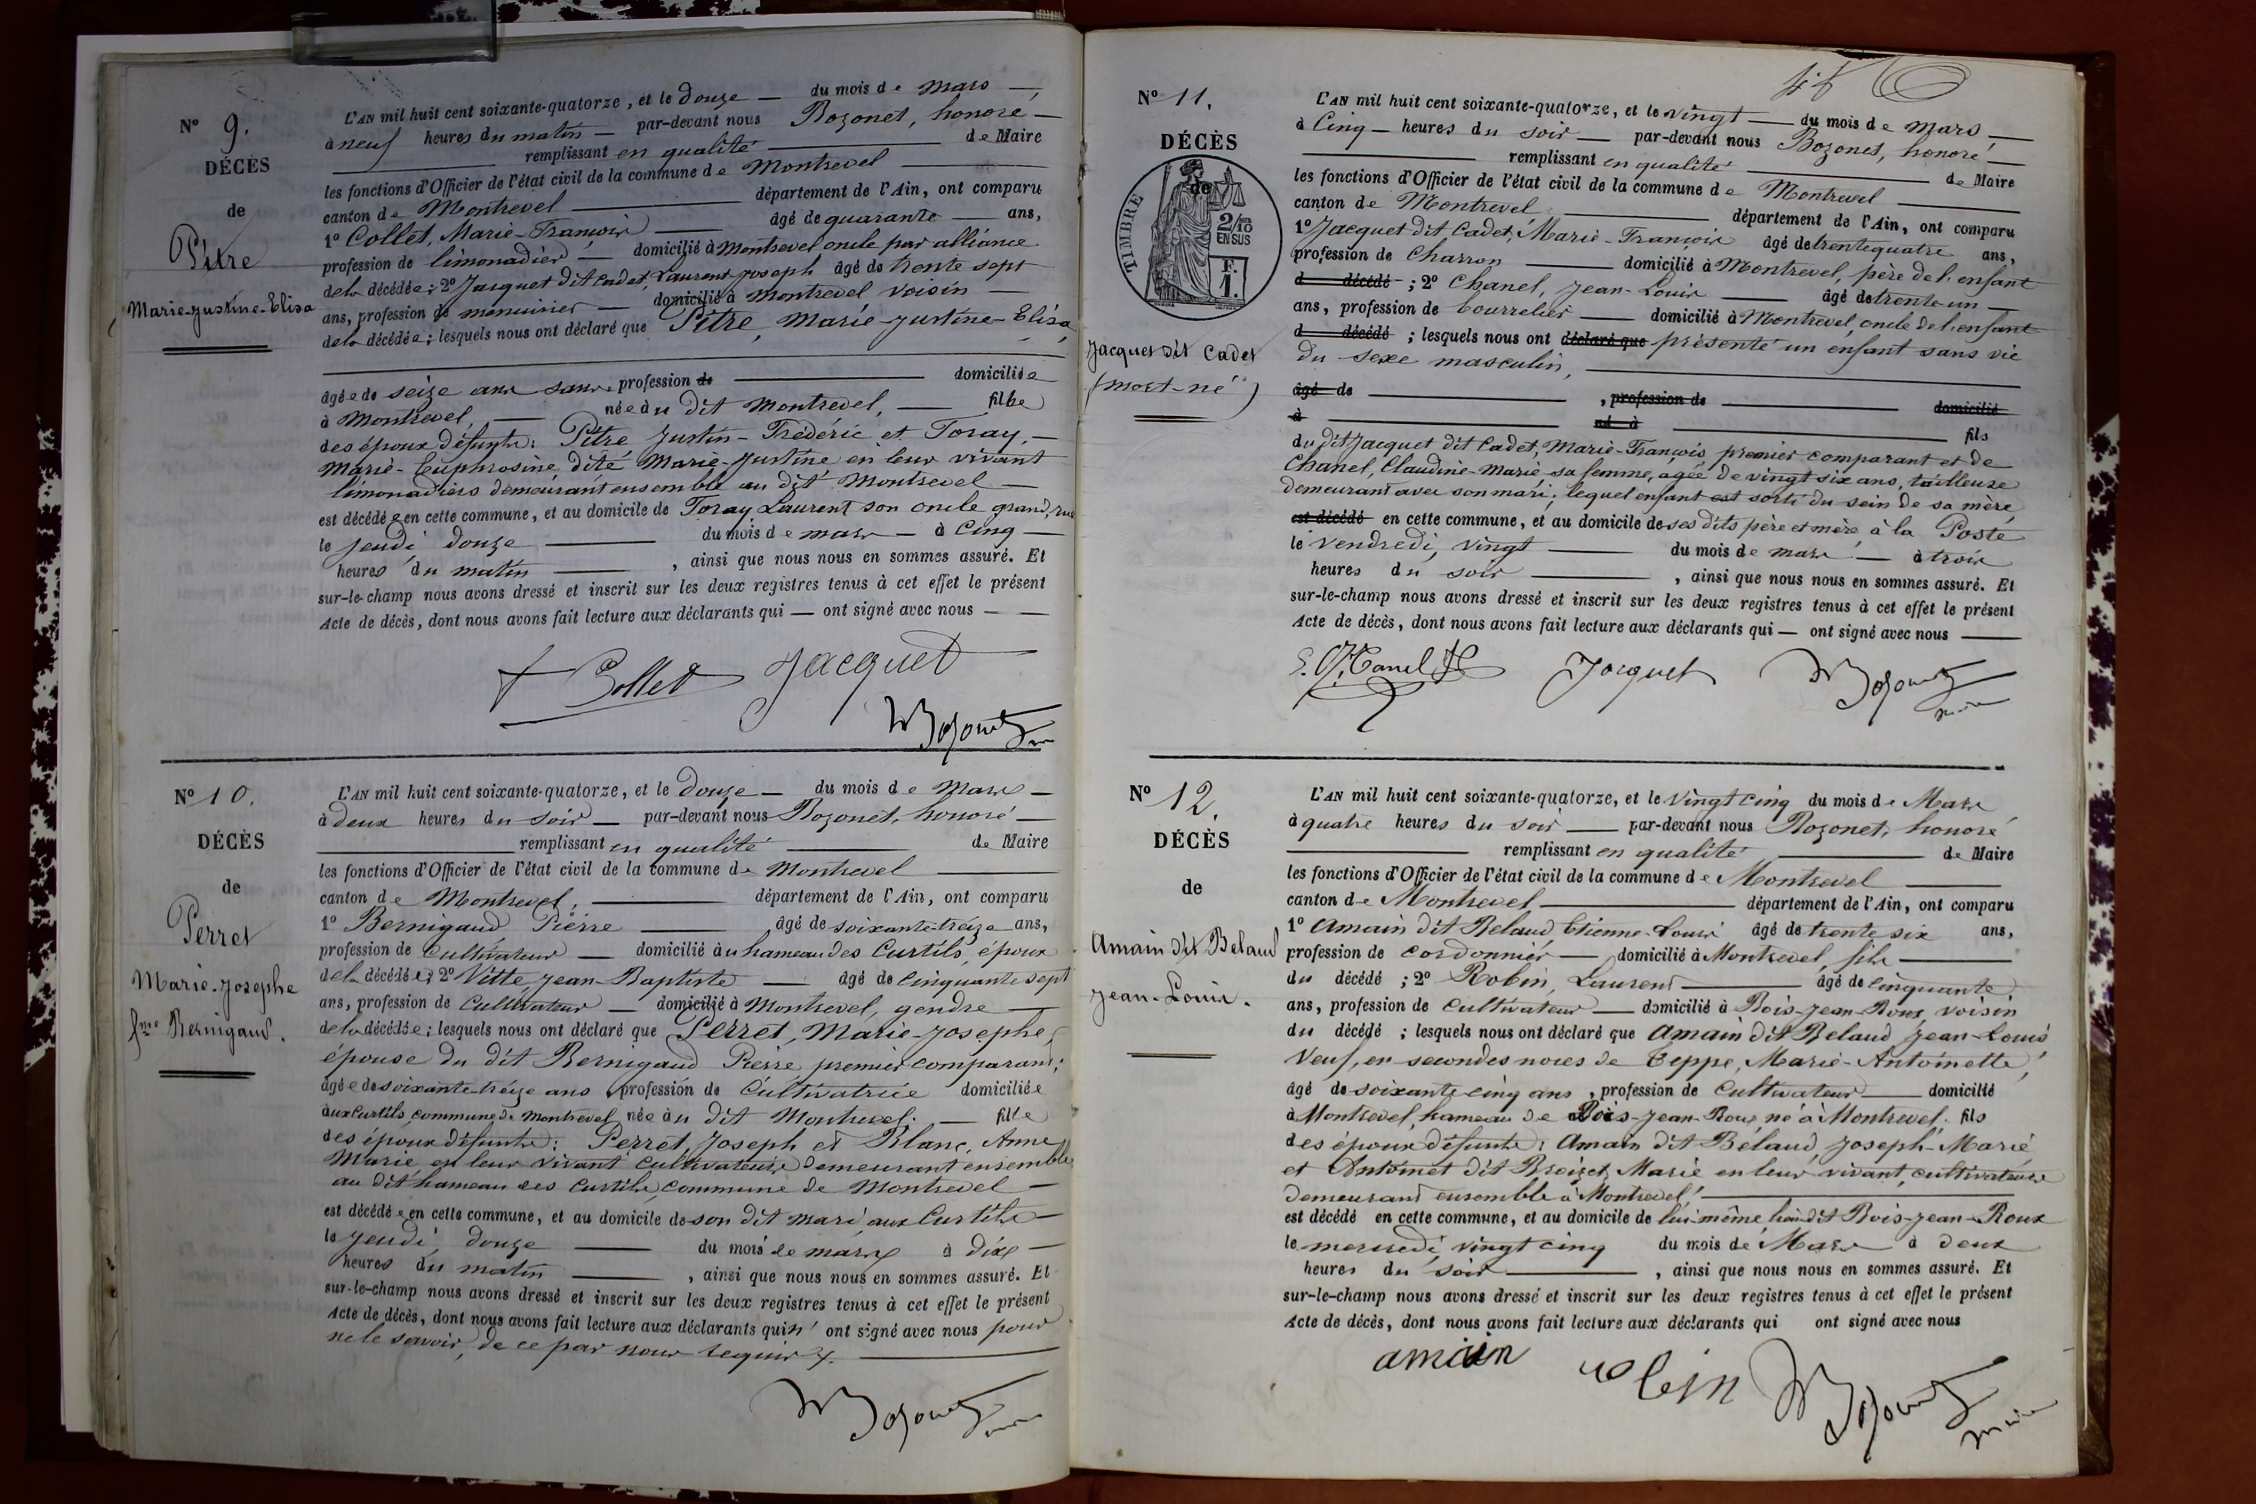 Nº 9.
DÉCÈS
de
Pitre
Marie-Justine-Elisa
L'AN mil huit cent soixante-quatorze, et le douze du mois de mars
à neuf heures du matin par-devant nous Bozonet, honoré
remplissant en qualité de Maire
les fonctions d'Officier de l'état civil de la commune de Montrevel
canton de Montrevel département de l'Ain, ont comparu
1º Collet, Marie-François âgé de quarante ans,
profession de limonadier domicilié à Montrevel oncle par alliance
de la décédée; 2º Jacquet dit Cadet, Laurent-Joseph âgé de trente sept
ans, profession de menuisier domicilié à Montrevel voisin
de la décédée; lesquels nous ont déclaré que Pitre, Marie-Justine-Elisa
âgée de seize ans sans profession de domiciliée
à Montrevel, née à u dit Montrevel, fille
des époux défunts: Pitre Justin-Frédéric et Toray,
Marie-Euphrosine dite Marie-Justine en leur vivant
limonadiers demeurant ensemble au dit Montrevel
est décédée en cette commune, et au domicile de Toray Laurent son oncle grand, rue
le jeudi douze du mois de mars à cinq
heures du matin, ainsi que nous nous en sommes assuré. Et
sur-le-champ nous avons dressé et inscrit sur les deux registres tenus à cet effet le présent
Acte de décès, dont nous avons fait lecture aux déclarants qui ont signé avec nous
Collet Jacquet
Bozonet
Nº 10.
DÉCÈS
de
Perret
Marie-Josephe
fme Bernigaud.
L'AN mil huit cent soixante-quatorze, et le douze du mois de Mars
à deux heures du soir par-devant nous Bozonet, honoré
remplissant en qualité de Maire
les fonctions d'Officier de l'état civil de la commune de Montrevel
canton de Montrevel, département de l'Ain, ont comparu
1º Bernigaud Pierre âgé de soixante-treize ans,
profession de Cultivateur domicilié à u hameau des Curtils, époux
de la décédée; 2º Vitte Jean-Baptiste âgé de cinquante sept
ans, profession de Cultivateur domicilié à Montrevel, gendre
de la décédée; lesquels nous ont déclaré que Perret, Marie-Josephe,
épouse du dit Bernigaud Pierre premier comparant;
âgée de soixante-treize ans profession de Cultivatrice domiciliée
aux Curtils commune de Montrevel née à u dit Montrevel: fille
des époux défunts: Perret, Joseph et Blanc, Anne
Marie en leur vivant cultivateurs demeurant ensemble
au dit hameau des Curtils, commune de Montrevel
est décédée en cette commune, et au domicile de son dit mari aux Curtils
le jeudi douze du mois de mars à dix
heures du matin, ainsi que nous nous en sommes assuré. Et
sur-le-champ nous avons dressé et inscrit sur les deux registres tenus à cet effet le présent
Acte de décès, dont nous avons fait lecture aux déclarants qui n'ont signé avec nous pour
ne le savoir, de ce par nous requis.
Bozonet
Nº 11.
DÉCÈS
de
TIMBRE
2/10
EN SUS
F.
1.
Jacquet dit Cadet
(mort-né)
L'AN mil huit cent soixante-quatorze, et le vingt du mois de mars
à Cinq heures du soir par-devant nous Bozonet, honoré
remplissant en qualité de Maire
les fonctions d'Officier de l'état civil de la commune de Montrevel
canton de Montrevel département de l'Ain, ont comparu
1º Jacquet dit Cadet, Marie-François âgé de trente quatre ans,
profession de Charron domicilié à Montrevel, père de l'enfant
d décédé; 2º Chanel, Jean-Louis âgé de trente-un
ans, profession de bourrelier domicilié à Montrevel, oncle de l'enfant
d décédé; lesquels nous ont déclaré que présenté un enfant sans vie
du sexe masculin,
âgé de, profession de domicilié
à né à fils
du dit Jacquet dit Cadet, Marie-François premier comparant et de
Chanel, Claudine-Marie sa femme, agée de vingt six ans, tailleuse
demeurant avec son mari; lequel enfant est sorti du sein de sa mère
est décédé en cette commune, et au domicile de ses dits père et mère à la Poste
le Vendredi, vingt du mois de mars à trois
heures du soir, ainsi que nous nous en sommes assuré. Et
sur-le-champ nous avons dressé et inscrit sur les deux registres tenus à cet effet le présent
Acte de décès, dont nous avons fait lecture aux déclarants qui ont signé avec nous
Jacquet Bozonet
maire
Nº 12.
DÉCÈS
de
Amain dit Belaud
Jean-Louis.
L'AN mil huit cent soixante-quatorze, et le vingt cinq du mois de Mars
à quatre heures du soir par-devant nous Bozonet, honoré
remplissant en qualité de Maire
les fonctions d'Officier de l'état civil de la commune de Montrevel
canton de Montrevel département de l'Ain, ont comparu
1º Amain dit Belaud Etienne-Louis âgé de trente six ans,
profession de cordonnier domicilié à Montrevel, fils
du décédé; 2º Robin, Laurent âgé de cinquante
ans, profession de cultivateur domicilié à Bois-Jean-Roux, voisin
du décédé; lesquels nous ont déclaré que Amain dit Belaud Jean-Louis
Veuf, en secondes noces de Teppe, Marie-Antoinette,
âgé de soixante cinq ans, profession de cultivateur domicilié
à Montrevel, hameau de Bois-Jean-Roux né à Montrevel, fils
des époux défunts: Amain dit Belaud, Joseph-Marie
et Antoinet dit Broizet, Marie en leur vivant, cultivateurs
demeurant ensemble à Montrevel.
est décédé en cette commune, et au domicile de lui-même lieu dit Bois-Jean-Roux
le mercredi, vingt cinq du mois de Mars à deux
heures du soir, ainsi que nous nous en sommes assuré. Et
sur-le-champ nous avons dressé et inscrit sur les deux registres tenus à cet effet le présent
Acte de décès, dont nous avons fait lecture aux déclarants qui ont signé avec nous
amain Bozonet
maire